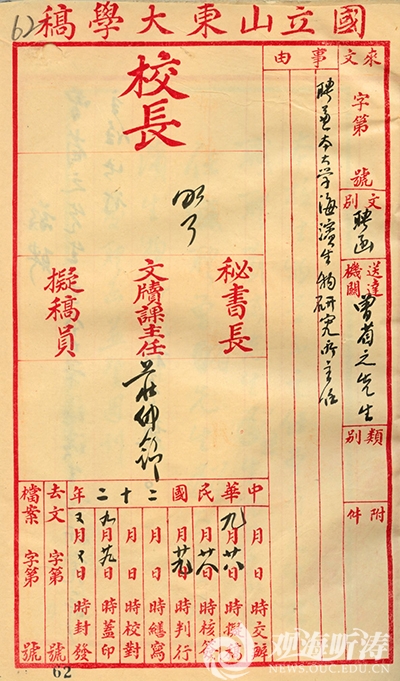 國立山東大學稿
62
來文 字第 號
文別 聘函
送達機關 曾省之先生
類別
附件
事由
聘兼本大学海濱生物研究所主任
校長
秘書長
文牘課主任
莊仲舒
擬稿員
中華民國二十二年
月 日 時交辦
九月廿八日 時擬稿
月廿八日 時核簽
月廿九日 時判行
月 日 時繕寫
月 日 時校對
九月廿九日 時蓋印
月 日 時封發
去文 字第 號
檔案 字第 號
62
观海听涛
NEWS.OUC.EDU.CN